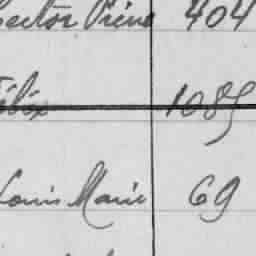 Hector Pierre 404
Félix 1085
Louis Marie 69